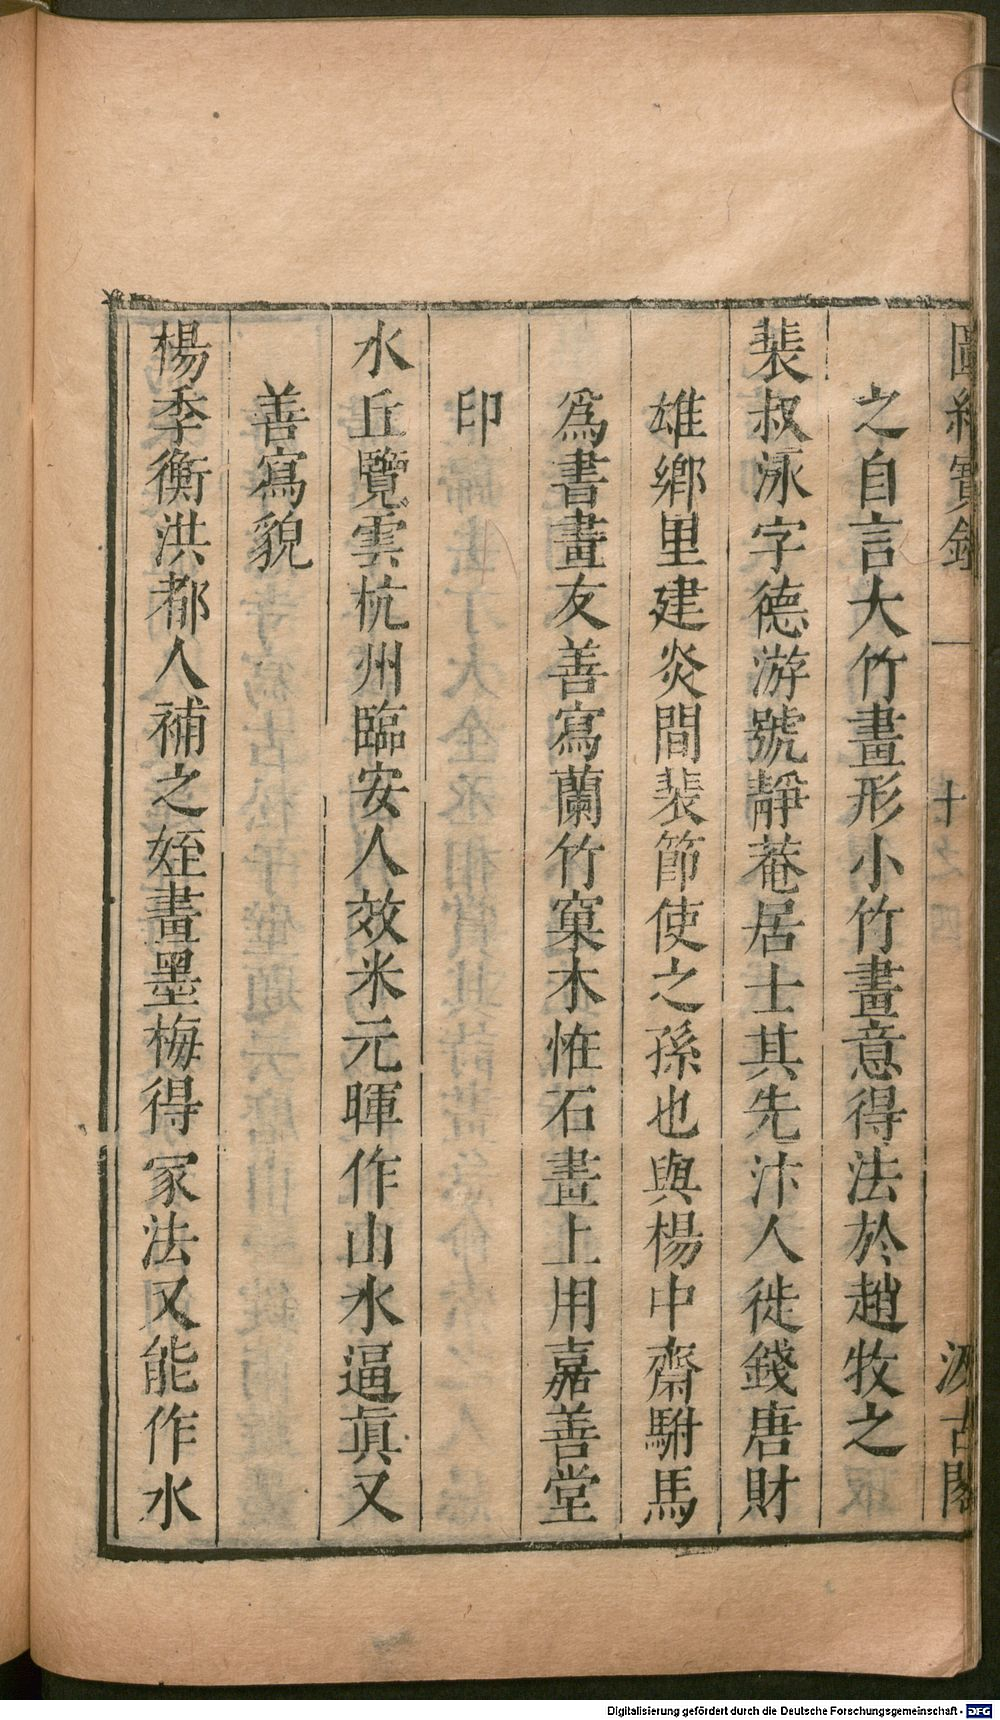 圖繪寶鑑 十之四 汲古閣
之自言大竹畫形小竹畫意得法於趙牧之
裴叔泳字德游號靜菴居士其先汴人徙錢唐財
雄鄉里建炎間裴節使之孫也與楊中齋駙馬
爲書畫友善寫蘭竹窠木恠石畫上用嘉善堂
印
水丘覽雲杭州臨安人效米元暉作山水逼眞又
善寫貌
楊季衡洪都人補之姪畫墨梅得家法又能作水
Digitalisierung gefördert durch die Deutsche Forschungsgemeinschaft - DFG